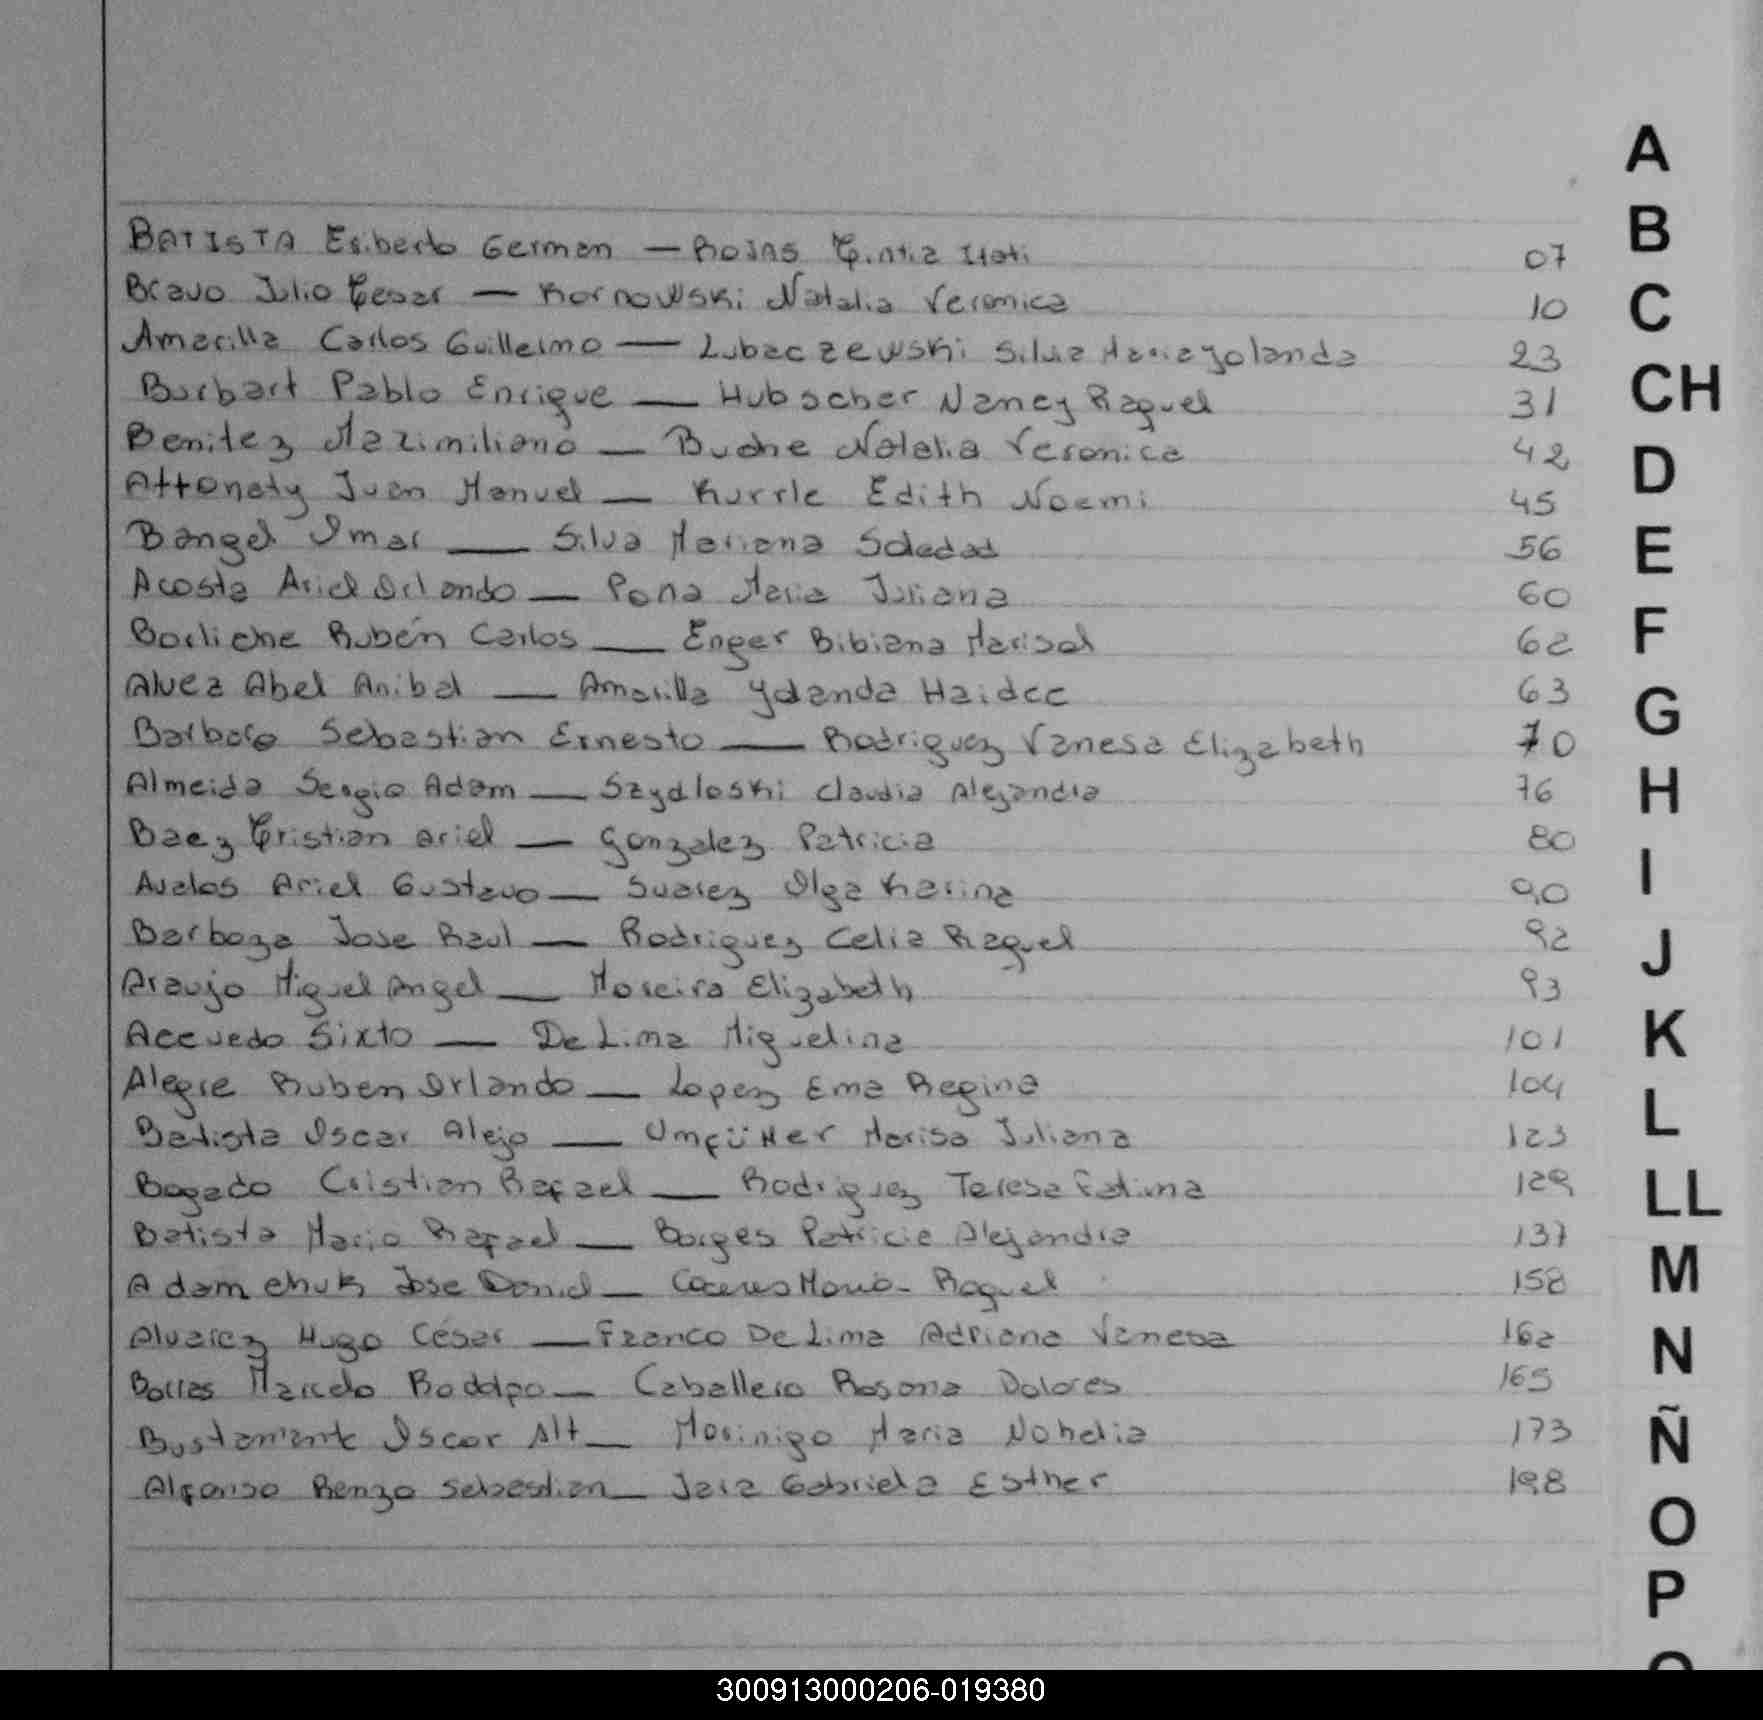 BATISTA Eriberto German — ROJAS Cintia Itati 07
Bravo Julio Cesar — Kornowski Natalia Veronica 10
Amarilla Carlos Guillermo — Lubaczewski Silvia Maria Yolanda 23
Burbart Pablo Enrique — Hubscher Nancy Raquel 31
Benitez Maximiliano — Buche Natalia Veronica 42
Attonaty Juan Manuel — Kurrle Edith Noemi 45
Bangel Omar — Silva Mariana Soledad 56
Acosta Ariel Orlando — Pona Maria Juliana 60
Borliche Rubén Carlos — Enger Bibiana Marisol 62
Alvez Abel Anibal — Amarilla Yolanda Haidee 63
Barboro Sebastian Ernesto — Rodriguez Vanesa Elizabeth 70
Almeida Sergio Adam — Szydloski Claudia Alejandra 76
Baez Cristian Ariel — Gonzalez Patricia 80
Avalos Ariel Gustavo — Suarez Olga Karina 90
Barboza Jose Raul — Rodriguez Celia Raquel 92
Araujo Miguel Angel — Moreira Elizabeth 93
Acevedo Sixto — De Lima Miguelina 101
Alegre Ruben Orlando — Lopez Ema Regina 104
Batista Oscar Alejo — Marisa Juliana 123
Bogado Cristian Rafael — Rodriguez Teresa Fatima 129
Batista Mario Rafael — Borges Patricia Alejandra 137
Adamchuk Jose Daniel — Caceres Maria Raquel 158
Alvarez Hugo César — Franco De Lima Adriana Vanesa 162
Borras Marcelo Rodolfo — Caballero Rosana Dolores 165
Bustamante Oscar Alt — Morinigo Maria Nohelia 173
Alfonso Renzo Sebastian — Jara Gabriela Esther 198
A
B
C
CH
D
E
F
G
H
I
J
K
L
LL
M
N
Ñ
O
P
300913000206-019380